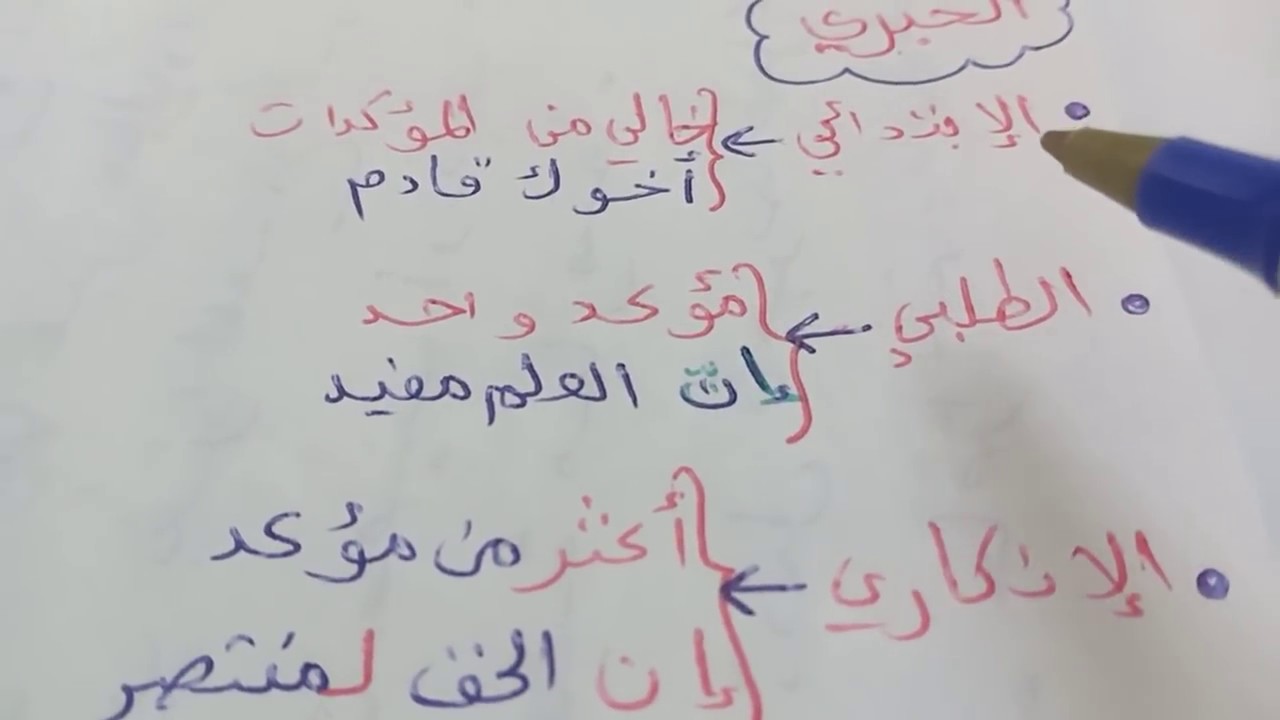 الخبري
• الإبتدائي ← خالي من المؤكدات
أخوك قادم
• الطلبي ← مؤكد واحد
إنّ العلم مفيد
• الإنكاري ← أكثر من مؤكد
إن الخق لمنتصر